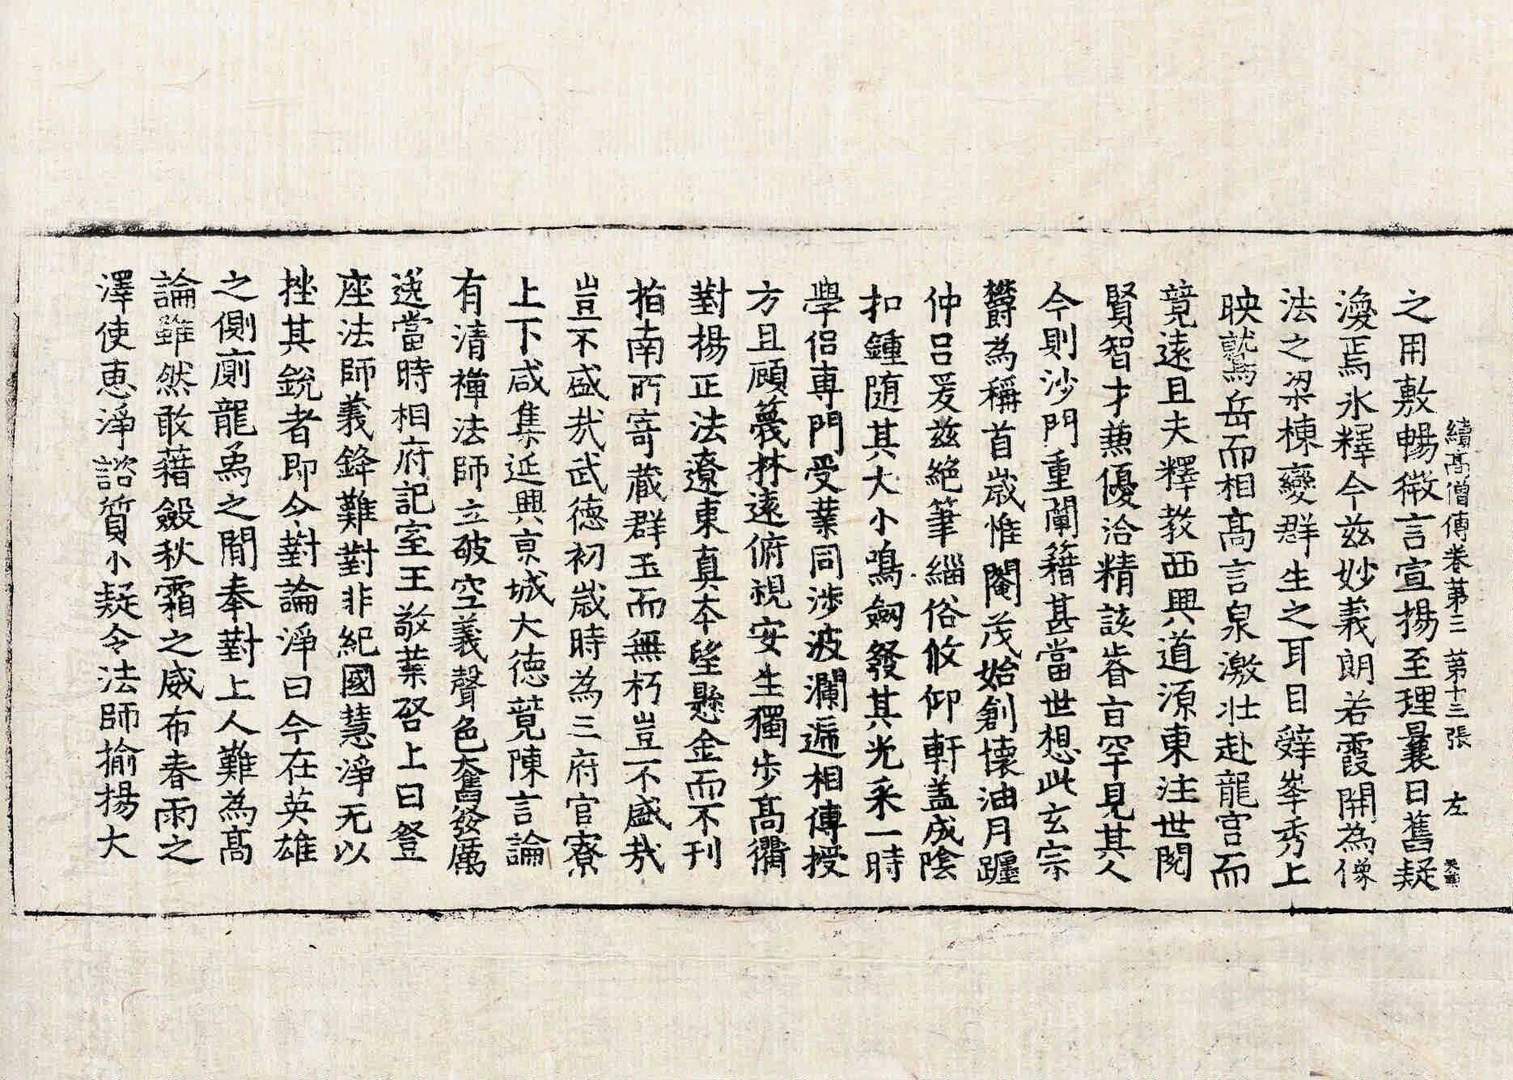 續高僧傳卷第三 第十三張 左
之用敷暢微言宣揚至理曩日舊疑
渙焉氷釋今茲妙義朗若霞開為像
法之梁棟變群生之耳目辭峯秀上
映鷲岳而相高言泉激壯赴龍宮而
竟遠且夫釋教西興道源東注世閱
賢智才兼優洽精該睿旨罕見其人
今則沙門重闡籍甚當世想此玄宗
欝為稱首歲惟閹茂始創懷油月躔
仲呂爰茲絕筆緇俗攸仰軒蓋成陰
扣鍾隨其大小鳴劔發其光采一時
學侶專門受業同涉波瀾遞相傳授
方且顧蔑林遠俯視安生獨步高衢
對揚正法遼東真本望懸金而不刊
指南所寄藏群玉而無朽豈不盛哉
豈不盛哉武德初歲時為三府官寮
上下咸集延興京城大德競陳言論
有清禪法師立破空義聲色奮發厲
逸當時相府記室王敬業啓上曰登
座法師義鋒難對非紀國慧淨无以
挫其銳者即令對論淨曰今在英雄
之側廁龍象之間奉對上人難為高
論雖然敢藉斂秋霜之威布春雨之
澤使惠淨諮質小疑令法師揄揚大